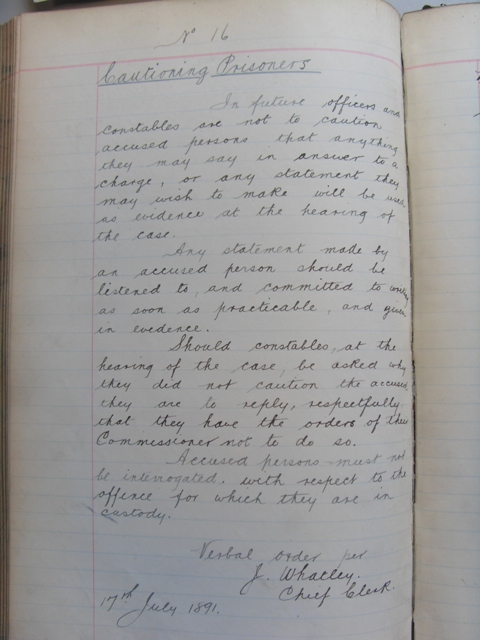 No 16
Cautioning Prisoners
In future officers and
constables are not to caution
accused persons that anything
they may say in answer to a
charge, or any statement they
may wish to make will be used
as evidence at the hearing of
the case.
Any statement made by
an accused person should be
listened to, and committed to writing
as soon as practicable, and given
in evidence.
Should constables, at the
hearing of the case, be asked why
they did not caution the accused,
they are to reply, respectfully,
that they have the orders of their
Commissioner not to do so.
Accused persons must not
be interrogated. with respect to the
offence for which they are in
custody.
Verbal order per
J. Whatley.
Chief Clerk.
17th July 1891.